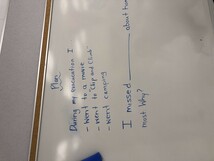 Plan
During my vacation I
- Went to a movie
- went to "Chip and Club"
- went camping
I missed ________ about
most. Why?